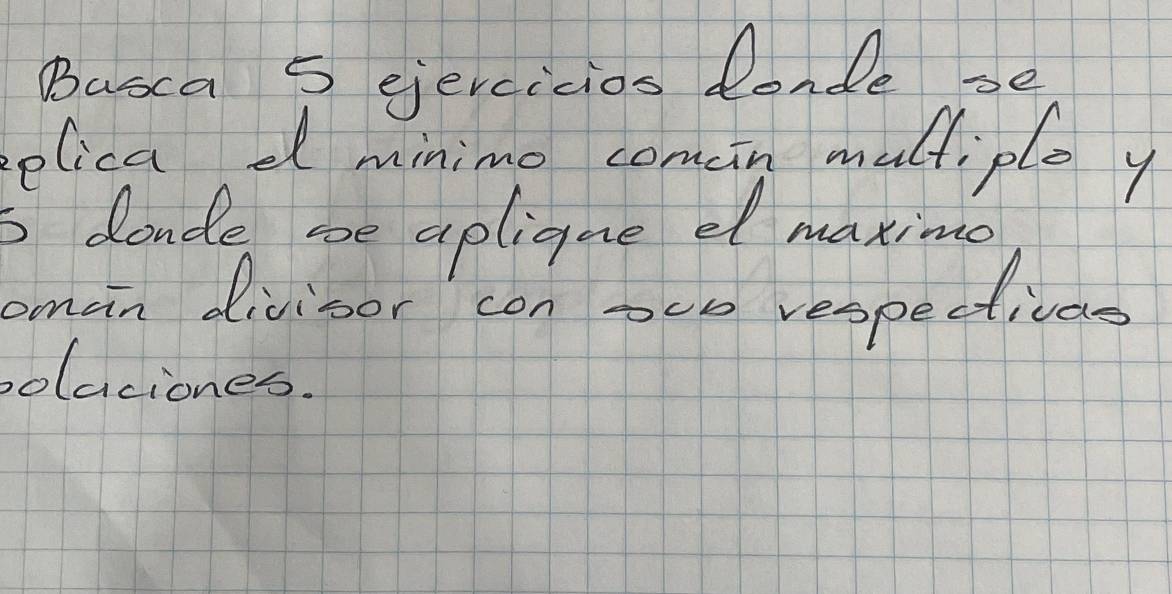 Busca 5 ejercicios donde se
aplica el minimo común multiplo y
5 donde se aplique el maximo
omún divisor con sus respectivas
soluciones.